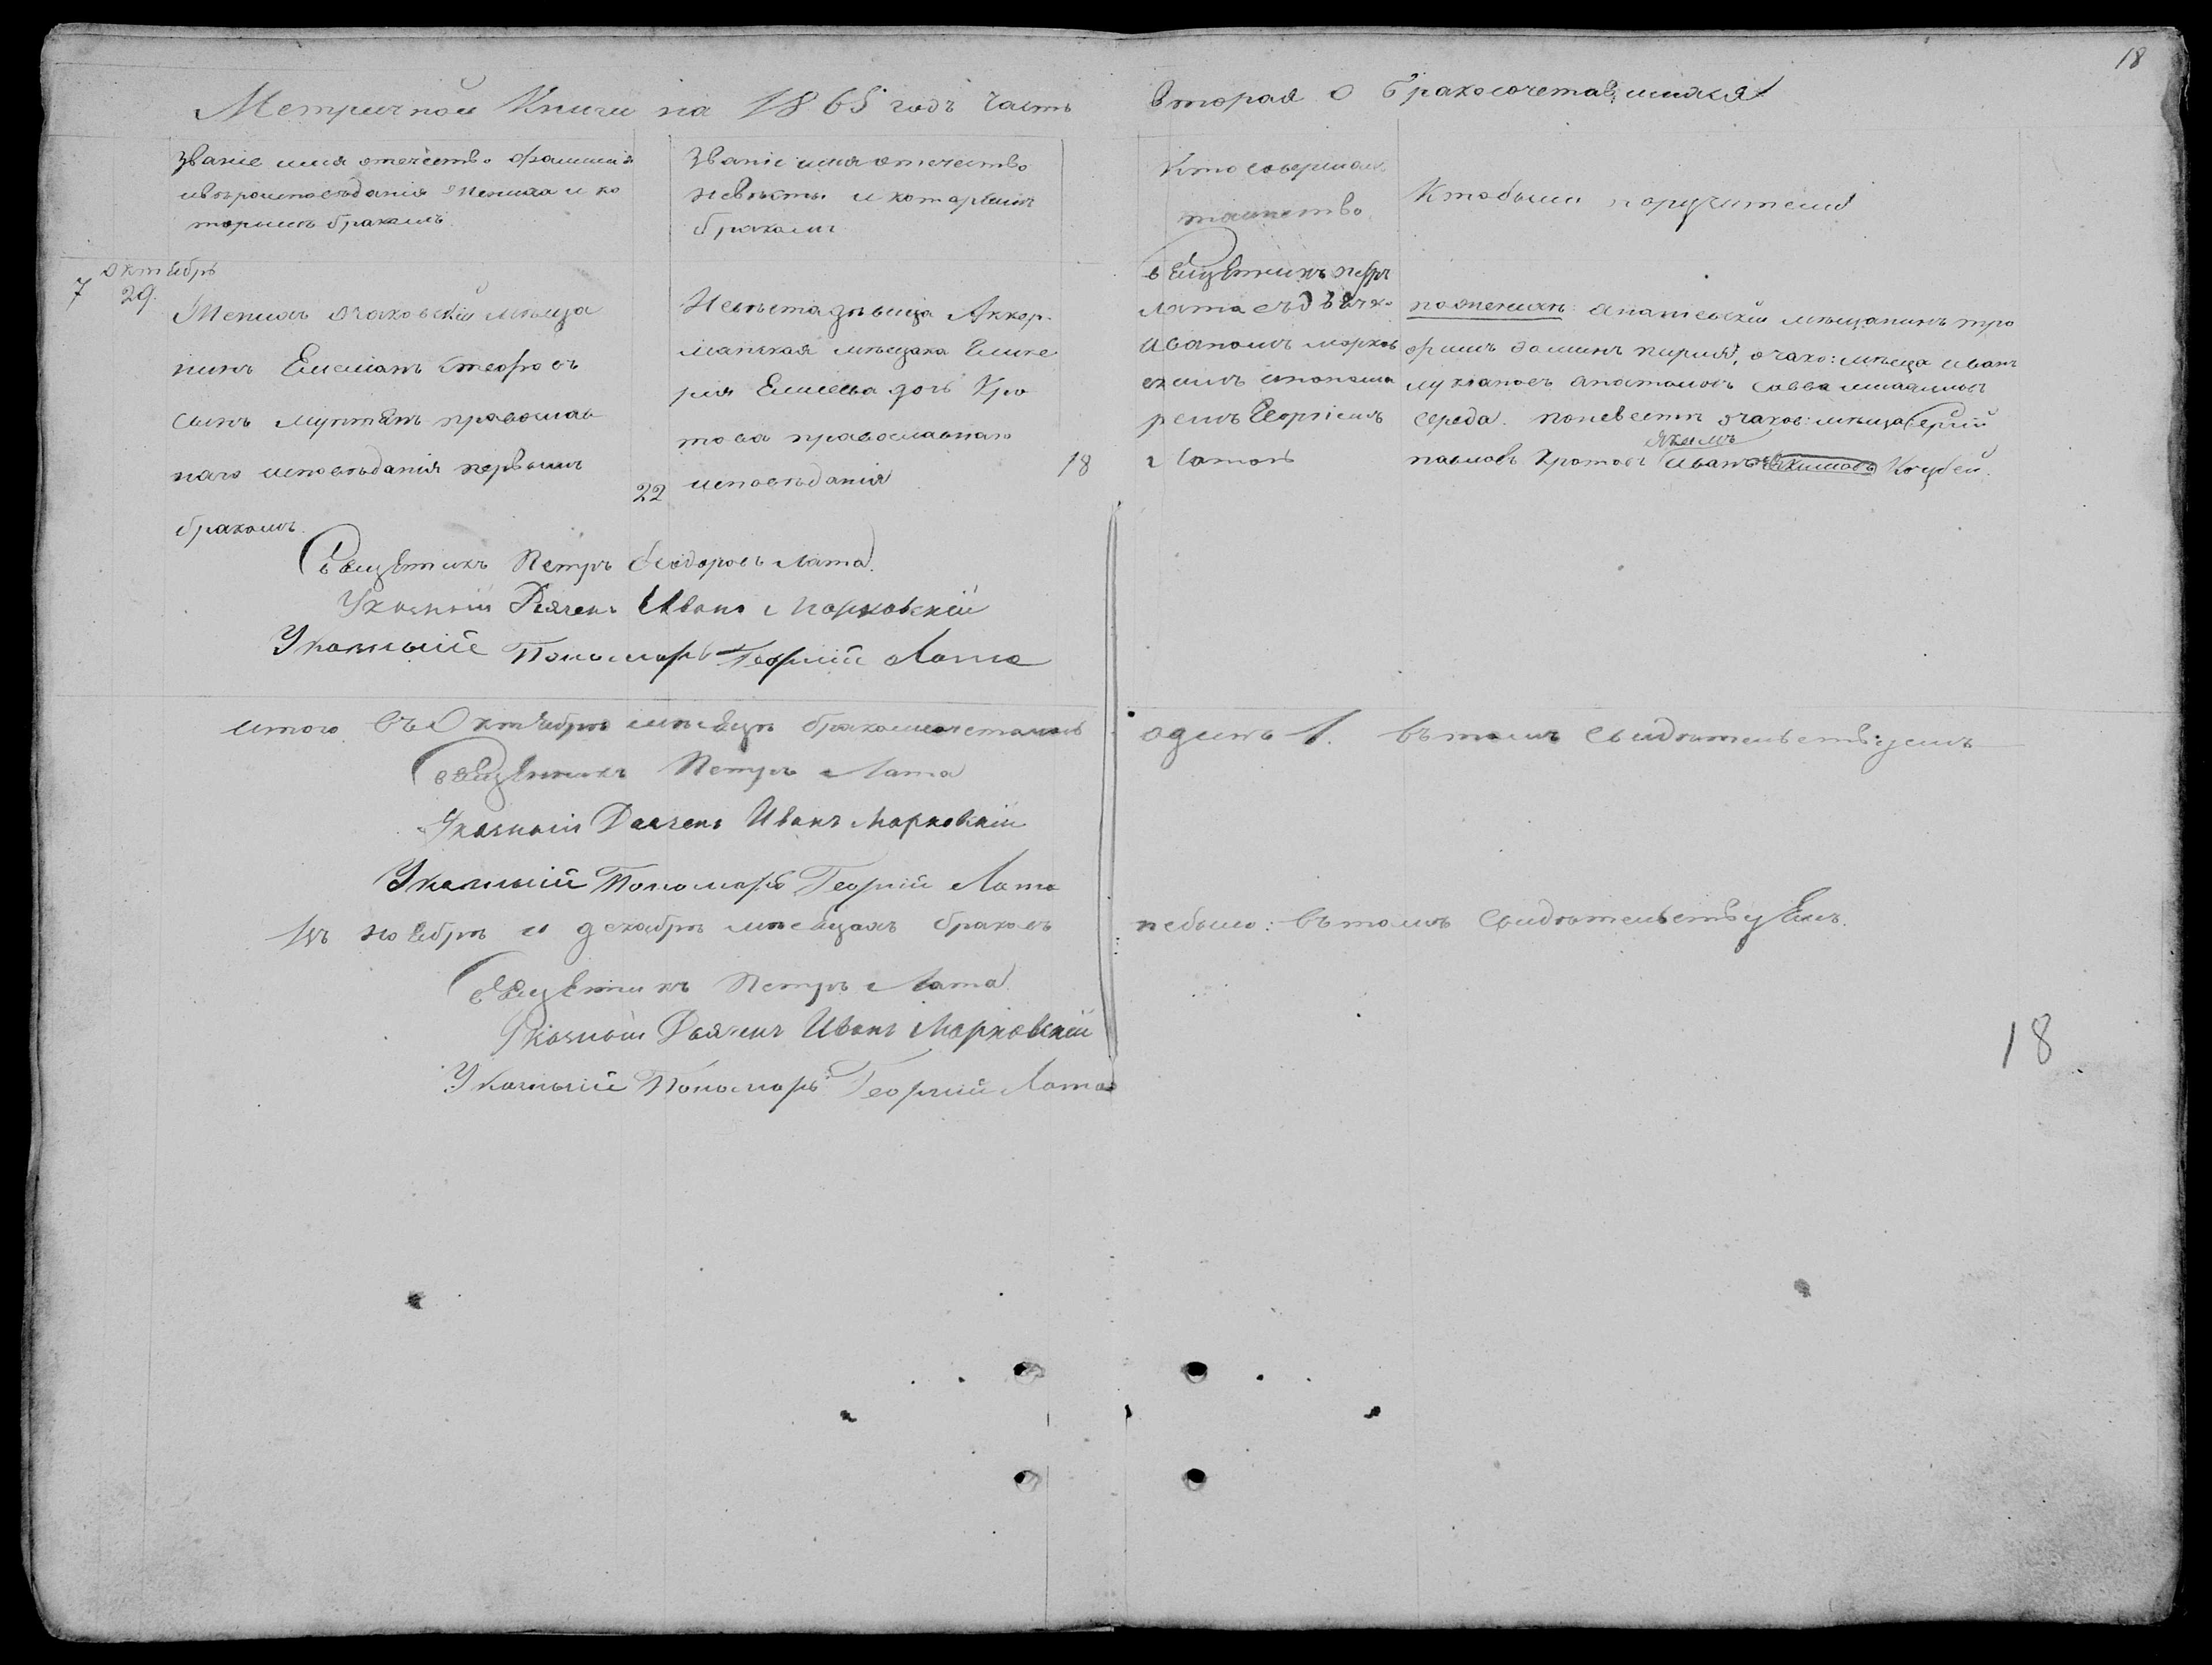 18
Метричной Книги на 1865 годъ Часть вторая о бракосочетавшихся
Званіе имя отечество фамилия
и вѣроисповѣданія жениха и ко
торымъ бракомъ
Званіе имя отечество
невѣсты и которымъ
бракомъ
Кто совершалъ
таинство
Кто были поручители
7
октябрь
29.
Женихъ очаковскій мѣща
нинъ Емелианъ
сынъ Мунтянъ православ
наго исповѣданія первымъ
бракомъ.
22
Невѣста дѣвица Аккер-
манская мѣщанка
рия дочь Кро
това православнаго
исповѣданія
18
Священникъ Петръ
Лата съ дьячко
Иваномъ Марков
скимъ и понома
ремъ Георгіемъ
Латою
по женихѣ: ананьевскій мѣщанинъ тро
фимъ очако: мѣща иванъ
савва
середа. по невестѣ очаков: мѣща
павловъ Кротовъ Иванъ Якимовъ Коцубей.
Якимъ
Священникъ Петръ Феодоровъ Лата.
Указный Дьячекъ Иванъ Марковскій
Указный Пономарь Георгий Лата
итого въ Октябрѣ мѣсяцѣ бракосочетались одинъ 1. въ томъ свидѣтельствуемъ
Священникъ Петръ Лата
Указный Дьячекъ Иванъ Марковскій
Указный Пономарь Георгий Лата
Въ ноябрѣ и декабрѣ мѣсяцахъ браковъ небыло: въ томъ свидѣтельствуемъ.
Священникъ Петръ Лата.
Указный Дьячекъ Иванъ Марковскій
18
Указный Пономарь Георгий Лата